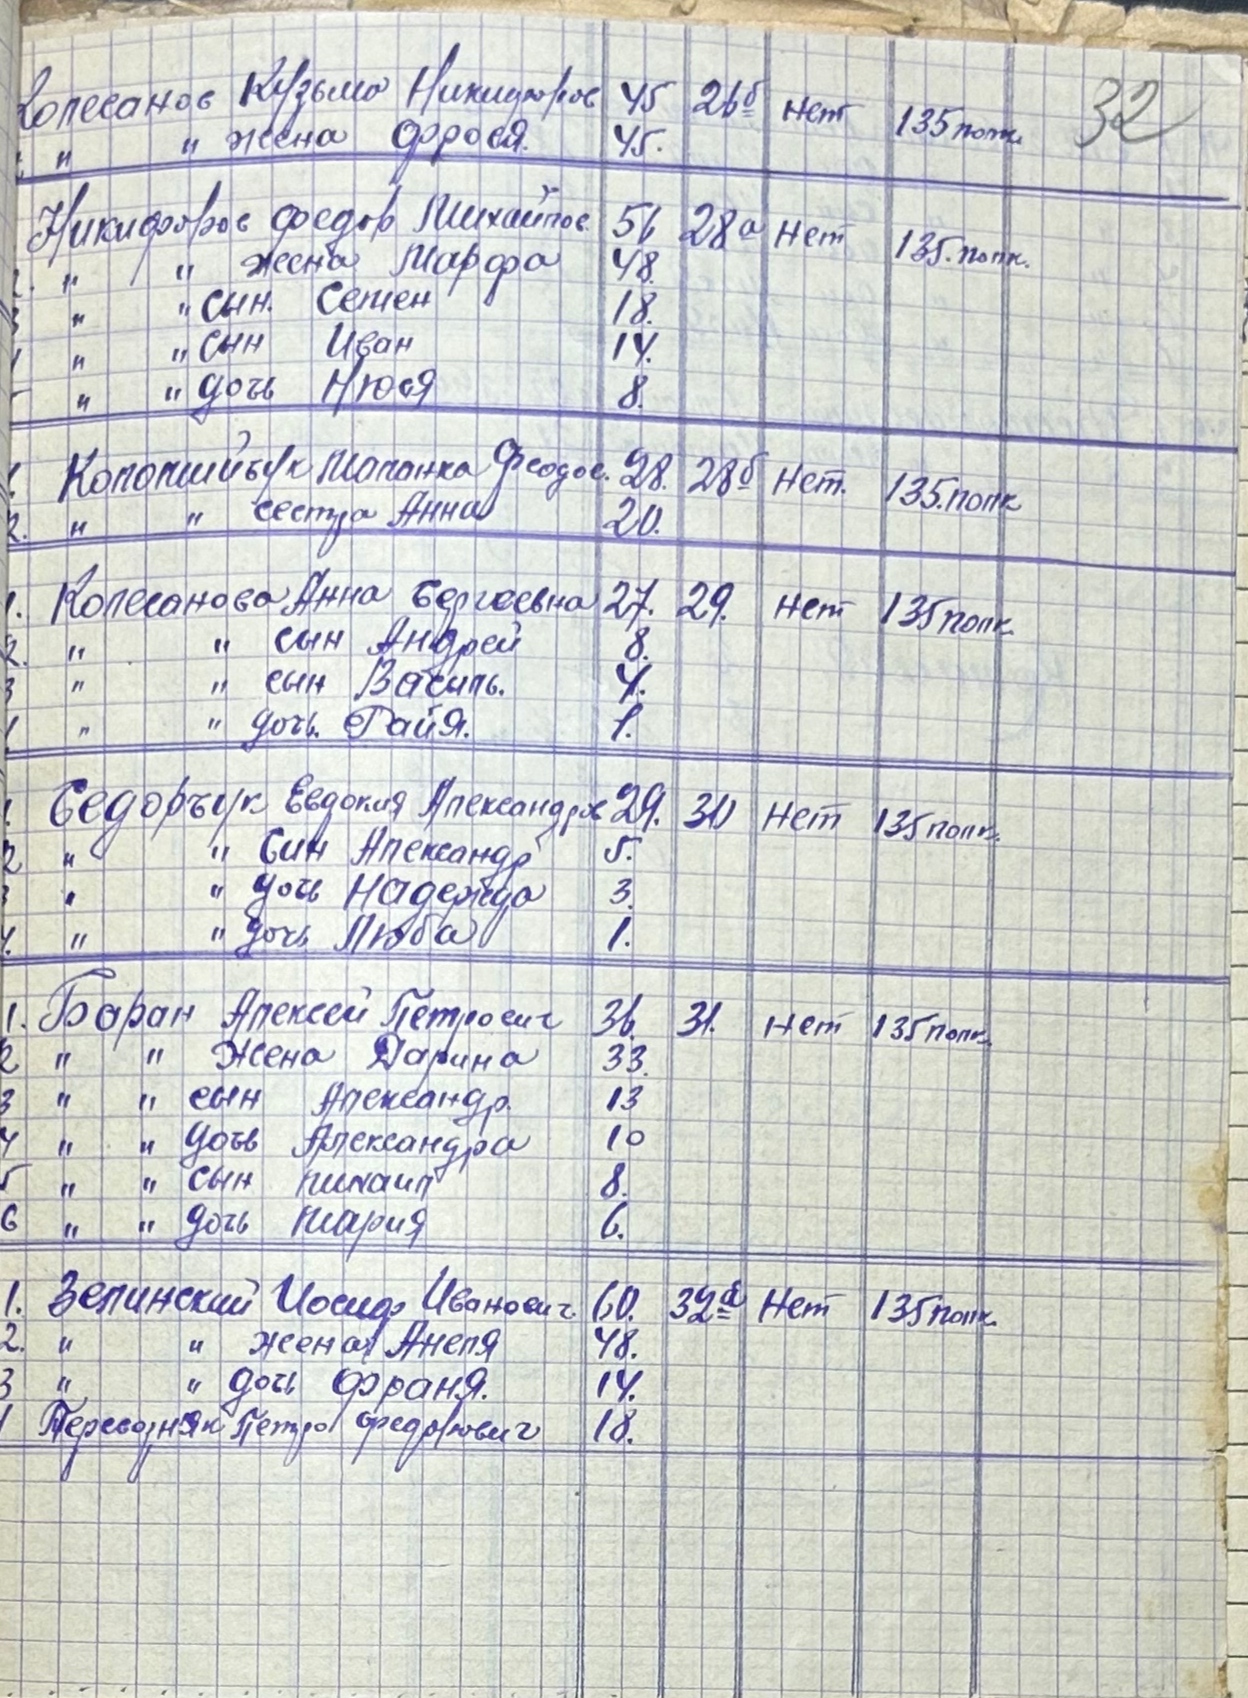 32
Колесанов Кузьма Никифоров 45 26б Нет 135 полк.
" " жена Фрося. 45.
Никифоров Федор Михайлов. 56 28а Нет 135. полк.
2. " " жена Марфа 48.
3 " " сын. Семен 18.
4 " " сын Иван 14.
5 " " дочь Нюся 8.
1. Феодос. 28. 28б Нет. 135. полк
2. " " сестра Анна 20.
1. Колесанова Анна Сергеевна 27. 29. Нет 135 полк.
2. " " сын Андрей 8.
3 " " сын Василь. 4.
4. " " дочь. Райя. 1.
1. Седорчук Евдокия Александров 29. 30 Нет 135 полк.
2 " " Син Александр 5.
3 " " дочь Надежда 3.
4. " " дочь Люба 1.
1. Баран Алексей Петрович 36. 31. Нет 135 полк.
2 " " жена Дарина 33.
3 " " сын Александр. 13
4 " " дочь Александра 10
5 " " сын михаил 8.
6 " " дочь Мария 6.
1. Зелинский Иосиф Иванович. 60. 32а Нет 135 полк.
2. " " жена Анеля 48.
3 " " дочь Франя. 14.
4 Перевозняк Петро Федорович 18.